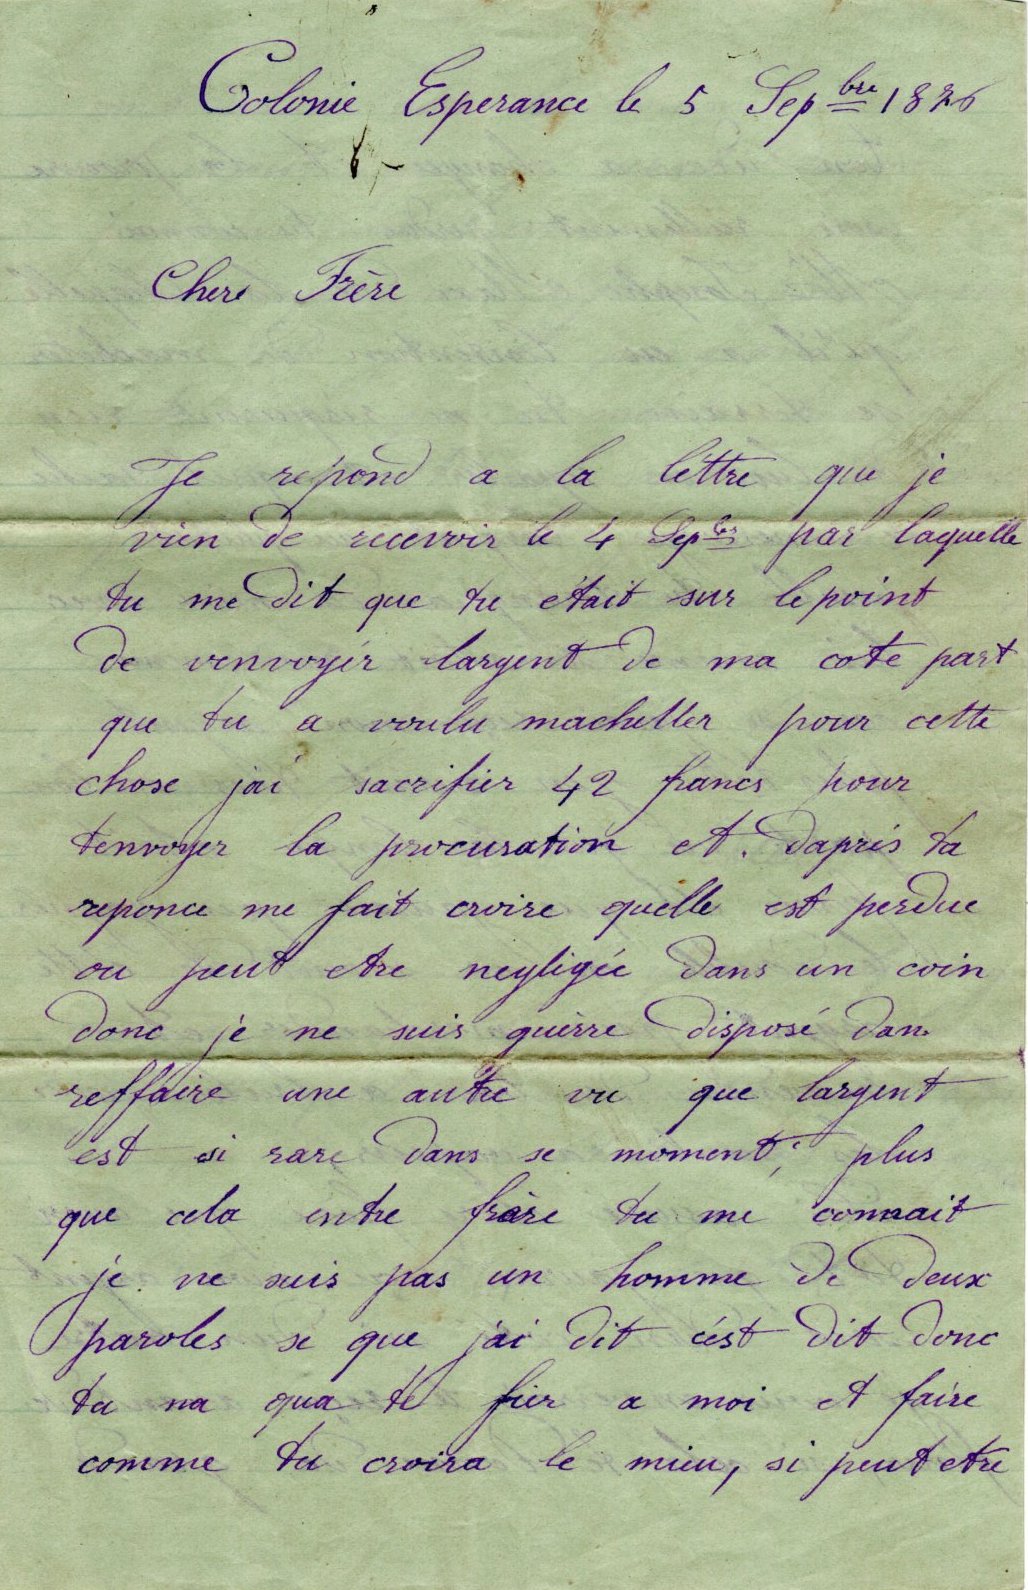 Colonie Esperance le 5 Sepbre 1876
Chere Frère
Je repond a la lettre que je
vien de recevoir le 4 Sepbre par laquelle
tu me dit que tu était sur le point
de venvoyér largent de ma cote part
que tu a voulu machetter pour cette
chose jai sacrifier 42 francs pour
tenvoyer la procuration et. daprés ta
reponce me fait croire quelle est perdue
ou peut etre negligée dans un coin
donc je ne suis guèrre disposé dan
reffaire une autre vu que largent
est si rare dans se moment, plus
que cela entre frére tu me connait
je ne suis pas un homme de deux
paroles se que jai dit cést dit donc
tu na qua te fier a moi et faire
comme tu croira le mieu, si peut etre